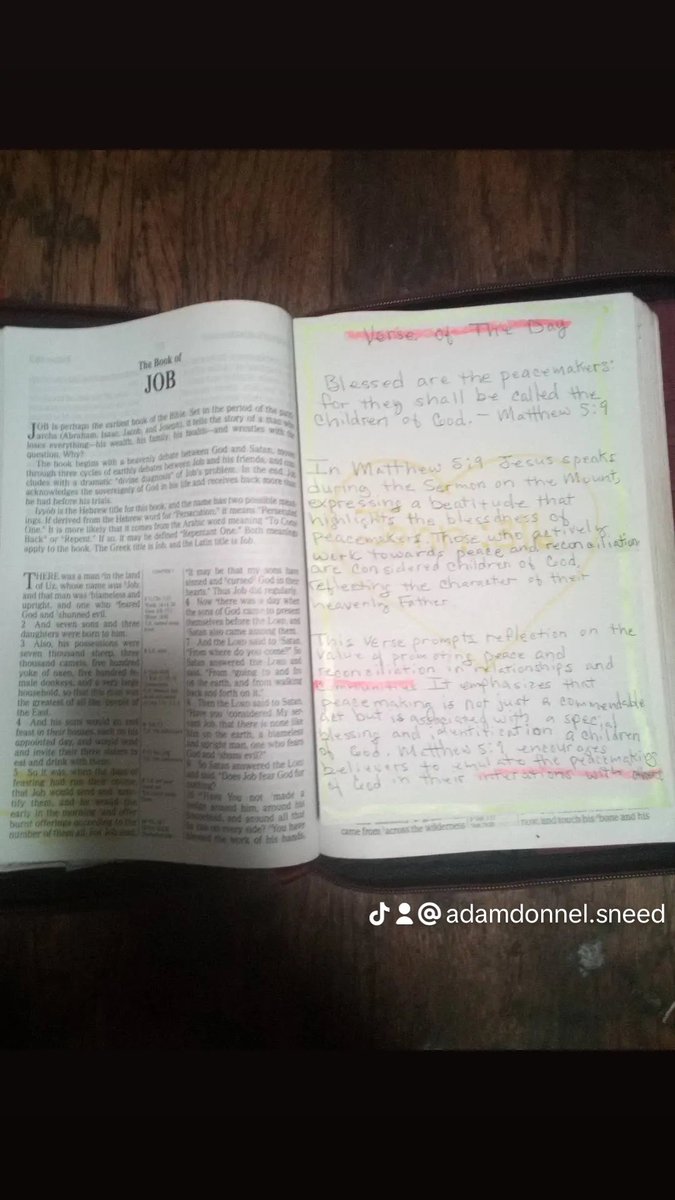 The Book of
JOB
JOB is perhaps the earliest book of the Bible. Set in the period of the patri-
archs (Abraham, Isaac, Jacob, and Joseph), it tells the story of a man who
loses everything—his wealth, his family, his health—and wrestles with the
question, Why?
The book begins with a heavenly debate between God and Satan, moves
through three cycles of earthly debates between Job and his friends, and con-
cludes with a dramatic "divine diagnosis" of Job's problem. In the end, Job
acknowledges the sovereignty of God in his life and receives back more than
he had before his trials.
Iyyōb is the Hebrew title for this book, and the name has two possible mean-
ings. If derived from the Hebrew word for "Persecution," it means "Persecuted
One." It is more likely that it comes from the Arabic word meaning "To Come
Back" or "Repent." If so, it may be defined "Repentant One." Both meanings
apply to the book. The Greek title is Iob, and the Latin title is Iob.
THERE was a man in the land
of Uz, whose name was Job;
and that man was blameless and
upright, and one who feared
God and shunned evil.
2 And seven sons and three
daughters were born to him.
3 Also, his possessions were
seven thousand sheep, three
thousand camels, five hundred
yoke of oxen, five hundred fe-
male donkeys, and a very large
household, so that this man was
the greatest of all the people of
the East.
4 And his sons would go and
feast in their houses, each on his
appointed day, and would send
and invite their three sisters to
eat and drink with them.
5 So it was, when the days of
feasting had run their course,
that Job would send and sanc-
tify them, and he would rise
early in the morning and offer
burnt offerings according to the
number of them all. For Job said,
"It may be that my sons have
sinned and cursed God in their
hearts." Thus Job did regularly.
6 Now there was a day when
the sons of God came to present
themselves before the LORD, and
Satan also came among them.
7 And the LORD said to Satan,
"From where do you come?" So
Satan answered the LORD and
said, "From going to and fro
on the earth, and from walking
back and forth on it."
8 Then the LORD said to Satan,
"Have you considered My ser-
vant Job, that there is none like
him on the earth, a blameless
and upright man, one who fears
God and shuns evil?"
9 So Satan answered the LORD
and said, "Does Job fear God for
nothing?
10 "Have You not made a
hedge around him, around his
household, and around all that
he has on every side? You have
blessed the work of his hands,
Verse of The Day
Blessed are the peacemakers:
for they shall be called the
children of God. – Matthew 5:9
In Matthew 5:9 Jesus speaks
during the Sermon on the Mount,
expressing a beatitude that
highlights the blessdness of
peacemakers. Those who actively
work towards peace and reconciliation
are considered children of God,
reflecting the character of their
heavenly Father
This verse prompts reflection on the
value of promoting peace and
reconciliation in relationships and
It emphasizes that
peacemaking is not just a commendable
act but is associated with a special
blessing and identification a children
of God. Matthew 5:9 encourages
believers to emulate the peacemaking
of God in their interations with
came from across the wilderness
now, and touch his bone and his
@adamdonnel.sneed